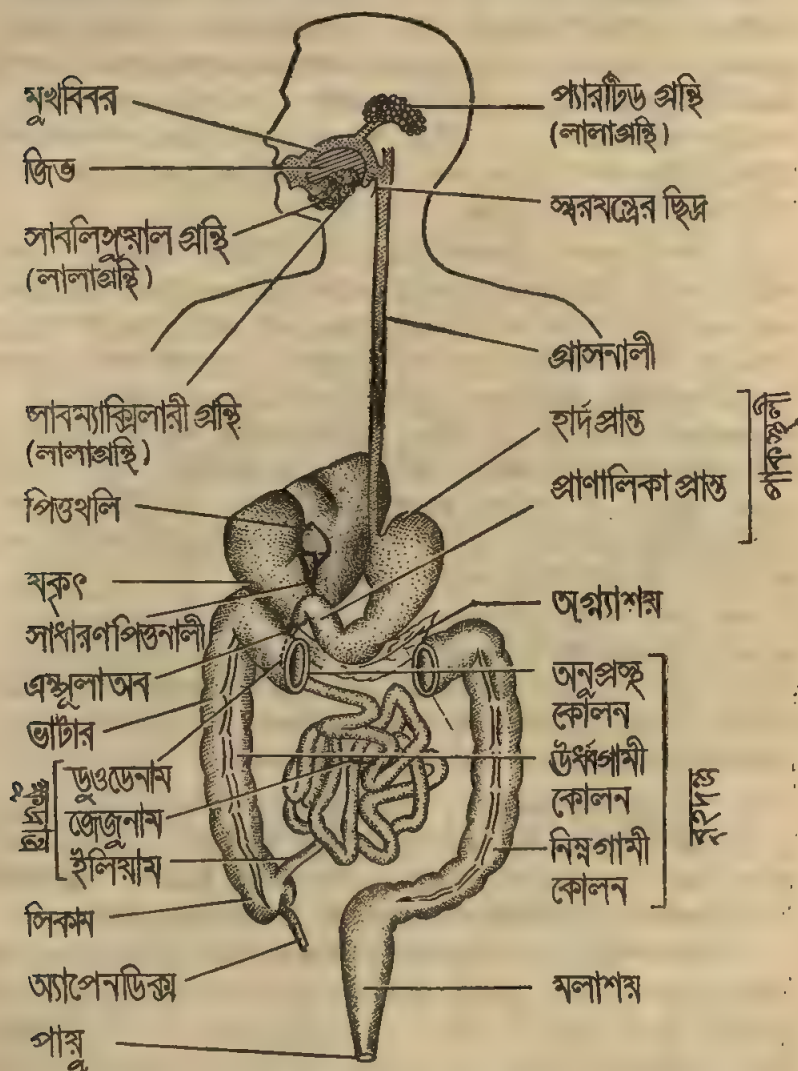 মুখবিবর
জিভ
সাবলিঙ্গুয়াল গ্রন্থি
(লালাগ্রন্থি)
সাবম্যাক্সিলারী গ্রন্থি
(লালাগ্রন্থি)
পিত্তথলি
যকৃৎ
সাধারণ পিত্তনালী
এম্পুলা অব
ভাটার
ডুওডেনাম
জেজুনাম
ইলিয়াম
ক্ষুদ্রান্ত্র
সিকাম
অ্যাপেনডিক্স
পায়ু
প্যারটিড গ্রন্থি
(লালাগ্রন্থি)
স্বরযন্ত্রের ছিদ্র
গ্রাসনালী
হার্দ প্রান্ত
প্রাণালিকা প্রান্ত
পাকস্থলী
অগ্ন্যাশয়
অনুপ্রস্থ
কোলন
ঊর্ধ্বগামী
কোলন
নিম্নগামী
কোলন
বৃহদন্ত্র
মলাশয়